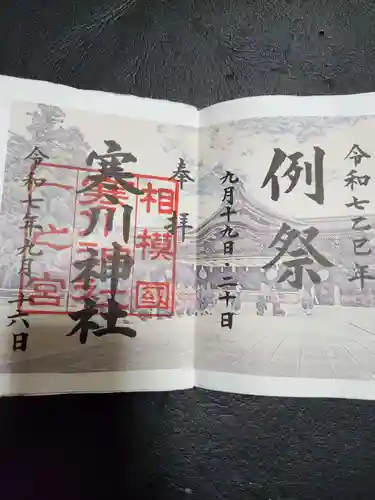 令和七乙巳年
例祭
九月十九日・二十日
奉拝
相模國
寒川神社
一之宮
令和七年九月二六日